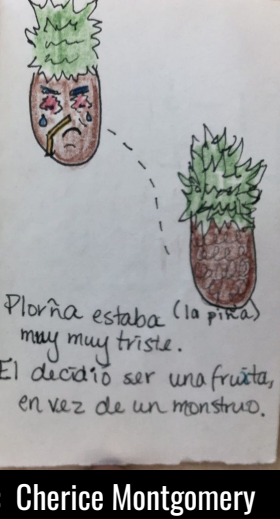 Plorña estaba (la piña)
muy muy triste.
El decidió ser una fruita,
en vez de un monstruo.
Cherice Montgomery